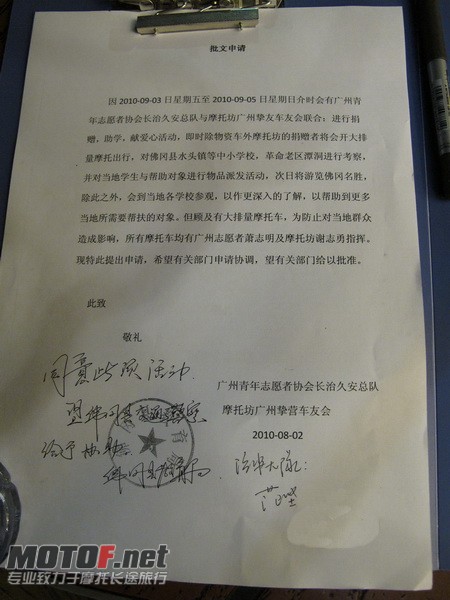 批文申请
因 2010-09-03 日星期五至 2010-09-05 日星期日介时会有广州青
年志愿者协会长治久安总队与摩托坊广州挚友车友会联合：进行捐
赠，助学，献爱心活动，即时除物资车外摩托坊的捐赠者将会开大排
量摩托出行，对佛冈县水头镇等中小学校，革命老区潭洞进行考察，
并对当地学生与帮助对象进行物品派发活动，次日将游览佛冈名胜，
除此之外，会到当地各学校参观，以作更深入的了解，以帮助到更多
当地所需要帮扶的对象。但顾及有大排量摩托车，为防止对当地群众
造成影响，所有摩托车均有广州志愿者萧志明及摩托坊谢志勇指挥。
现特此提出申请，希望有关部门申请协调，望有关部门给以批准。
此致
敬礼
同意此项活动
望佛冈县交通
给予协助
佛冈县
广州青年志愿者协会长治久安总队
摩托坊广州挚营车友会
2010-08-02
MOTOF.net
专业致力于摩托长途旅行